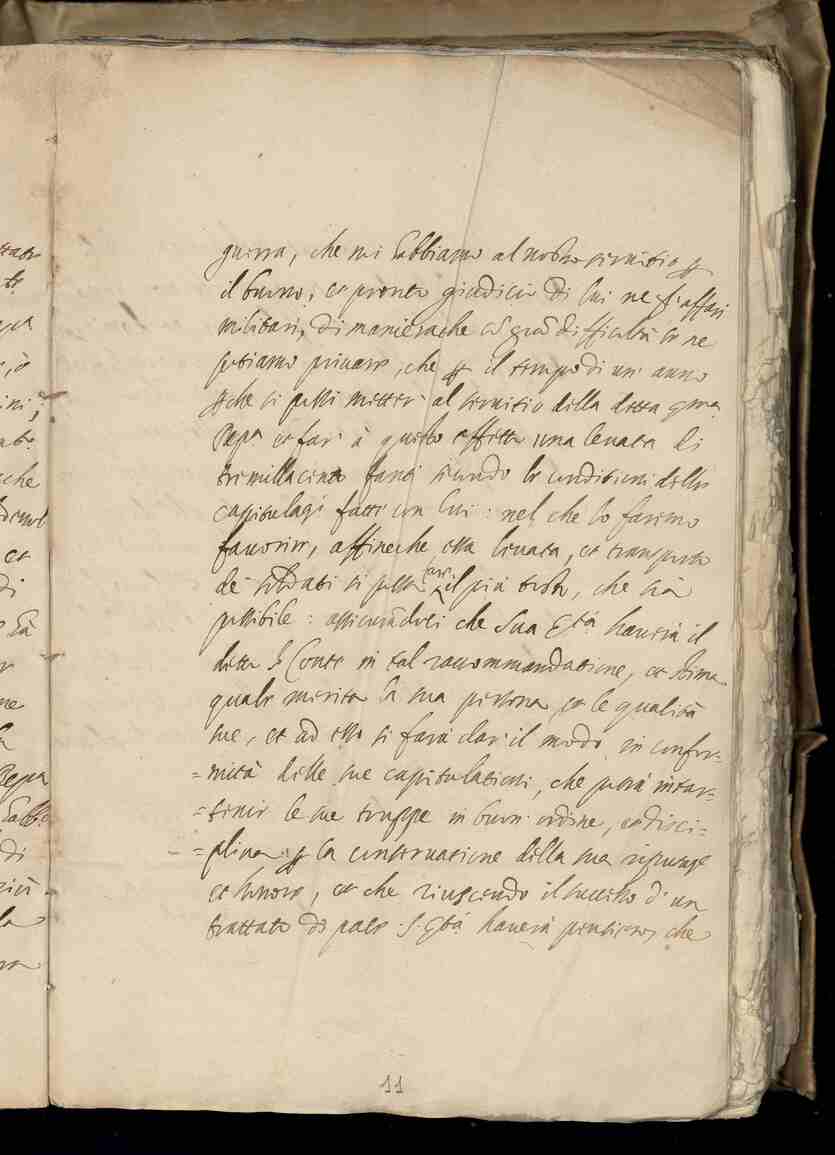 guerra, che noi habbiamo al nostro servitio p
il buono, et pronto giudicio di lui ne gl'affari
militari, di manierache cō grā difficultà lo ne
potiamo privare, che p il tempo di un' anno
pche si possi metter' al servitio della detta gma
Repa et far' à questo effetto una levata di
tremillacento fanti secondo le conditioni delli
capitulagi fatti con lui: nel che lo faremo
favorire, affineche essa levata, et transporto
de soldati si possa far il più tosto, che sia
possibile: assicurādoci che Sua Mtà haverà il
detto Sr Conte in tal raccommandatione, et stima
quale merita la sua persona, et le qualità
sue, et ad esso si farà dar' il modo in confor-
=mità delle sue capitulationi, che potrà intar-
=tenir le sue truppe in buon' ordine, et disci-
=plina p la conservatione della sua
et honore, et che riuscendo il successo d'un
trattato di pace S. Mtà haverà pensiero, che
11
habb
di
che
et
di